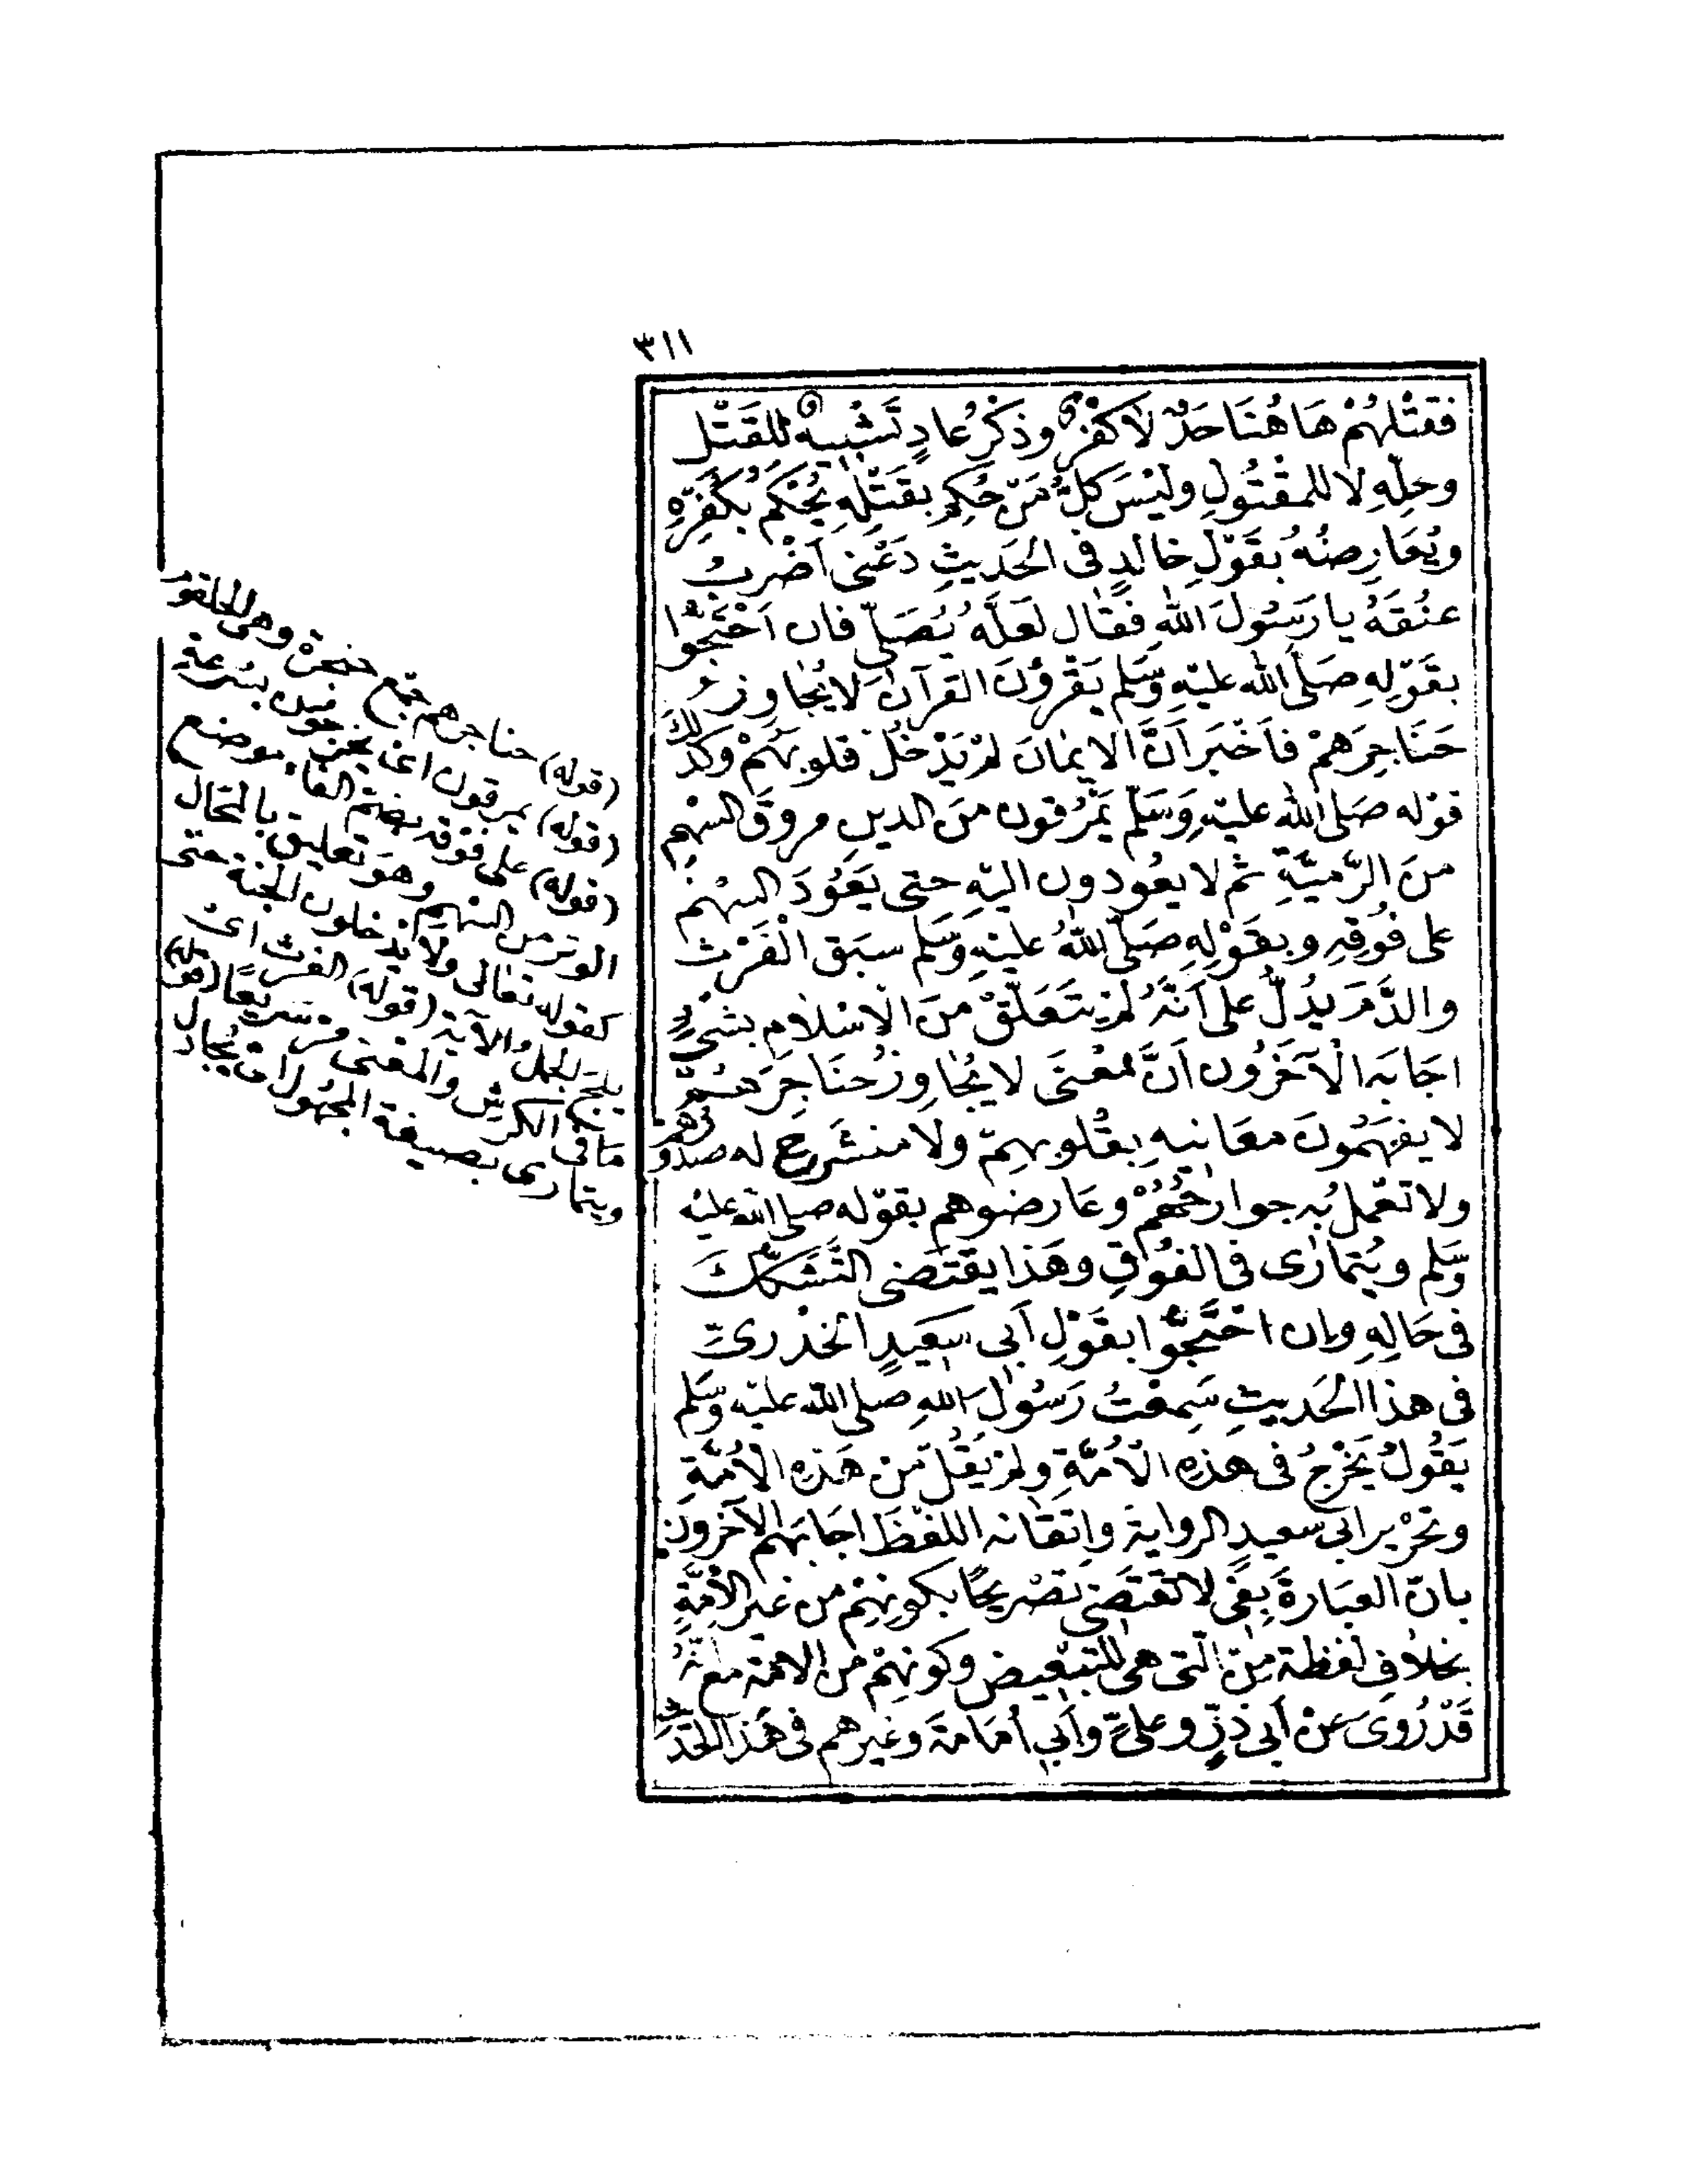 ٣١١
فَقَتْلُهُمْ هَا هُنَا حَدٌّ لَا كُفْرٌ وذِكْرُ عادٍ تَشْبِيهٌ لِلقَتْلِ
وحِلِّهِ لا للمَقْتُولِ ولَيْسَ كُلُّ مَنْ حُكِمَ بِقَتْلِهِ يُحْكَمُ بِكُفْرِهِ
ويُعَارِضُهُ بقَوْلِ خالدٍ فى الحَدِيثِ دَعْنى أَضْرِبْ
عُنُقَهُ يا رَسُولَ اللهِ فقال لَعَلَّهُ يُصَلّى فان احْتَجُّوا
بقَوْلِهِ صَلَّى الله عليْهِ وَسَّلم يَقْرَؤُنَ القرآنَ لا يُجَاوِزُ
حَنَاجِرَهُمْ فأَخْبَرَ أَنَّ الايمانَ لَمْ يَدْخُلْ قلوبَهُمْ وكذلك
قوْله صَلى الله عليْهِ وَسَلّم يَمْرُقون منَ الدينِ مروقَ السَّهْمِ
منَ الرَّمِيَّةِ ثم لا يعُودون اليْهِ حتى يَعُودَ السَّهْمُ
على فُوقِهِ وبقَوْلِهِ صَلّى اللهُ عليْهِ وَسَلم سبَق الْفَرْث
والدَّمَ يدُلُّ على أَنَّهُ لَمْ يتَعَلَّقْ مِنَ الْاسْلَامِ بِشَىْءٍ
اجَابَه الْآخَرُون أَنَّ مَعْنَى لا يُجَاوِزُ حَنَاجِرَهُمْ
لا يفهَمُونَ معَانيهِ بِقُلوبِهِمْ ولا منشَرِح له صدورُهم
ولا تعْمل بُه جوارحُهُمْ وعَارضوهم بقوْله صلى الله عليْه
وَسَّلم ويُتمارَى فى الفُوْقِ وهَذَا يقْتَضى التَّشَكُّكَ
فى حَالِهِ وان احْتَجُّوا بقَوْلِ أَبى سَعِيدٍ الخُدْرىّ
فى هذا الحَديثِ سَمِعْتُ رَسُولَ اللهِ صلى الله عليْه وَسَلم
يَقُولُ يَخْرُجُ فى هذِهِ الْأُمَّةِ ولم يَقُلْ مِن هَذِه الأُمَّةِ
وتحْرير أبى سعيدٍ الرواية وإتقَانه اللفْظَ اجَابَهم الآخرونَ
بانّ العبَارةَ بِفى لا تقتَضى تصْريحًا بكونِهِمْ من غير الأُمَّةِ
بخلافِ لفظة مِنْ الّتى هى للتبْعيض وكونِهِمْ من الامّة مع أنّهُ
قَدْ رُوىَ عنْ أبى ذرٍّ وعلىٍّ وأبى أُمَامَةَ وغيرهم فى هَذا الحَديث
(قوله) حناجرهم جمع حنجرة وهى الحلقوم
(قوله) يمرقون اى يخرجون بسرعة
(قوله) على فوقه بضم الفاء موضع
الوتر من السهم وهو تعليق بالمحال
كقوله تعالى ولا يدخلون الجنة حتى
يلج الجمل الآية (قوله) الفرث اى
مَا فى الكرش والمعنى مرّ سريعًا (قوله)
ويتمارى بصيغة المجهول اى يجادل